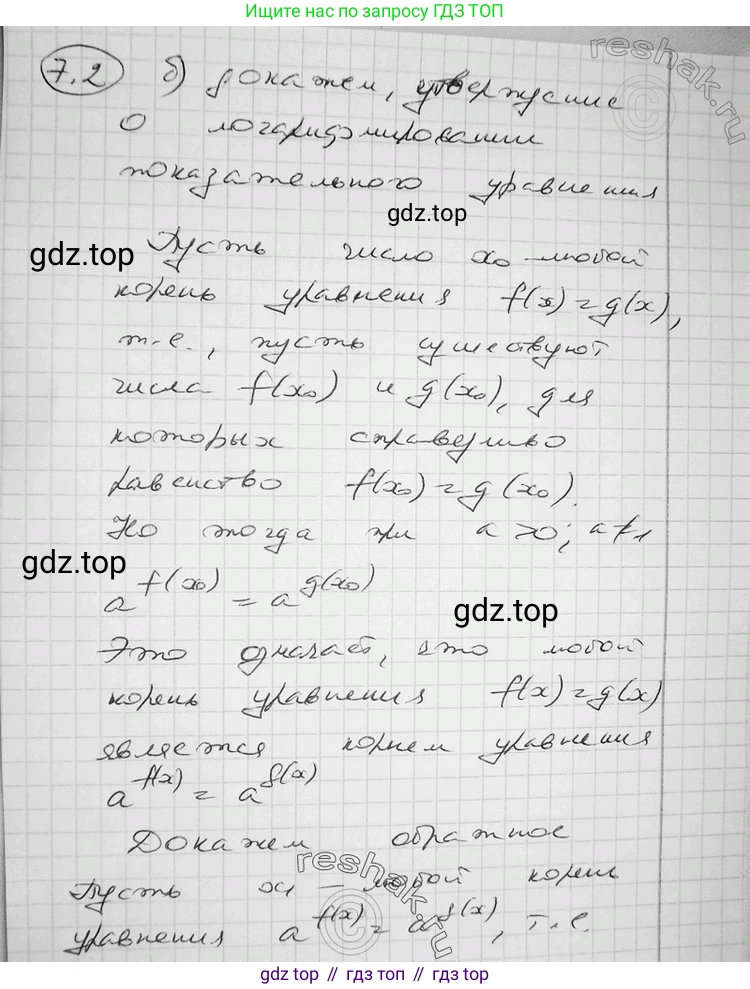 Ищите нас по запросу ГДЗ ТОП
7.2 б) докажем, утверждение
reshak.ru
о логарифмировании
показательного уравнения
gdz.top
Пусть число x₀ – любой
gdz.top
корень уравнения f(x) = g(x),
т.е., пусть существуют
числа f(x₀) и g(x₀), для
которых справедливо
равенство f(x₀) = g(x₀).
Но тогда при a > 0; a ≠ 1
gdz.top
a^f(x₀) = a^g(x₀)
gdz.top
Это означает, что любой
корень уравнения f(x) = g(x)
является корнем уравнения
a^f(x) = a^g(x)
Докажем обратное
reshak.ru
Пусть x₁ – любой корень
уравнения a^f(x) = a^g(x), т.е.
gdz.top // гдз топ // gdz.top